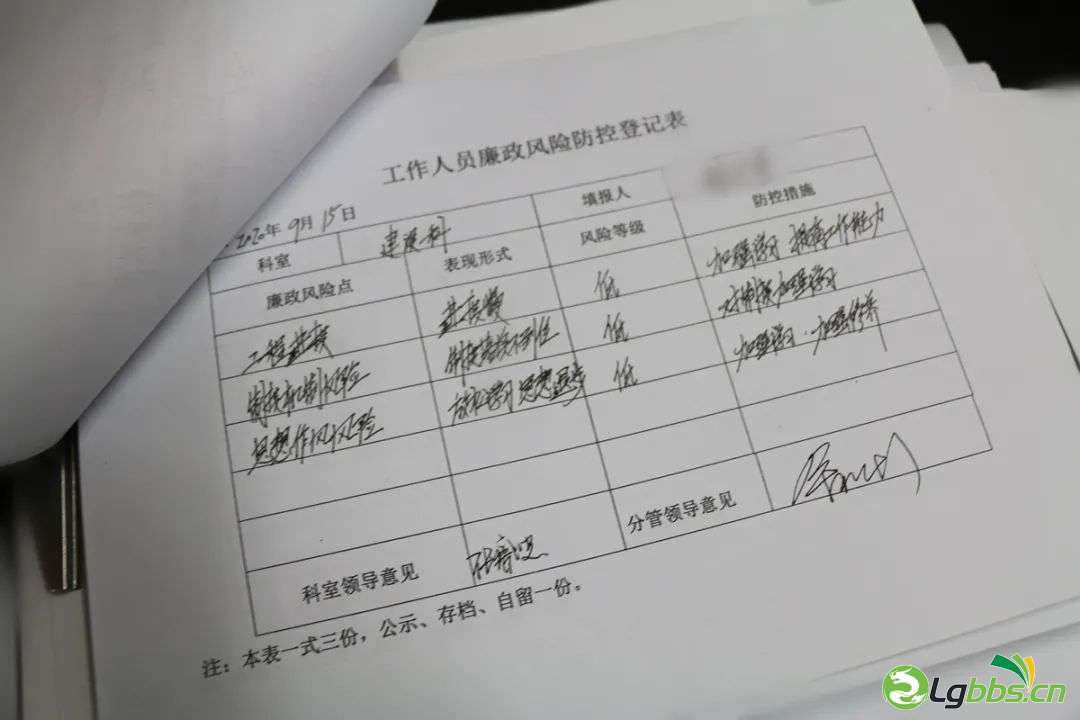 工作人员廉政风险防控登记表
2020年9月15日
科室 建设科 填报人
廉政风险点 表现形式 风险等级 防控措施
工程进度 进度慢 低 加强学习 提高工作能力
制度机制风险 制度落实不到位 低 对制度加强学习
思想作风风险 放松学习 思想退步 低 加强学习·加强修养
科室领导意见 分管领导意见
注：本表一式三份，公示、存档、自留一份。
Lgbbs.cn